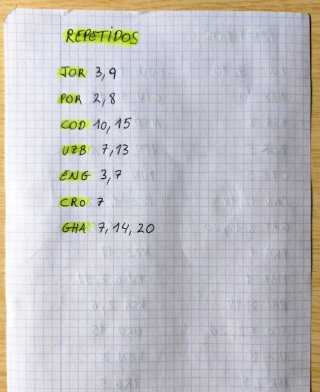 REPETIDOS
JOR 3,9
POR 2,8
COD 10,15
UZB 7,13
ENG 3,7
CRO 7
GHA 7,14,20